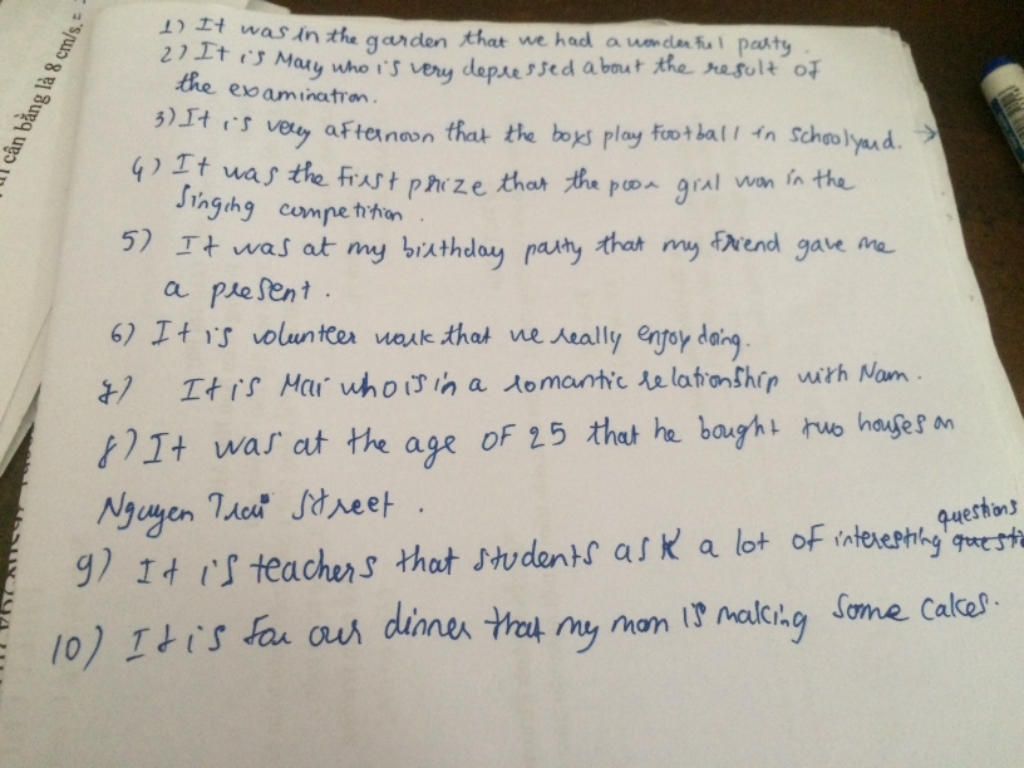 ʼi cân bằng là 8 cm/s.
1) It was in the garden that we had a wonderful party.
2) It is Mary who is very depressed about the result of
the examination.
3) It is very afternoon that the boys play football in schoolyard. →
4) It was the first prize that the poor girl won in the
singing competition.
5) It was at my birthday party that my friend gave me
a present.
6) It is volunteer work that we really enjoy doing.
7) It is Mai who is in a romantic relationship with Nam.
8) It was at the age of 25 that he bought two houses on
Nguyen Trai Street.
questions
9) It is teachers that students ask a lot of interesting
10) It is for our dinner that my mom is making some cakes.